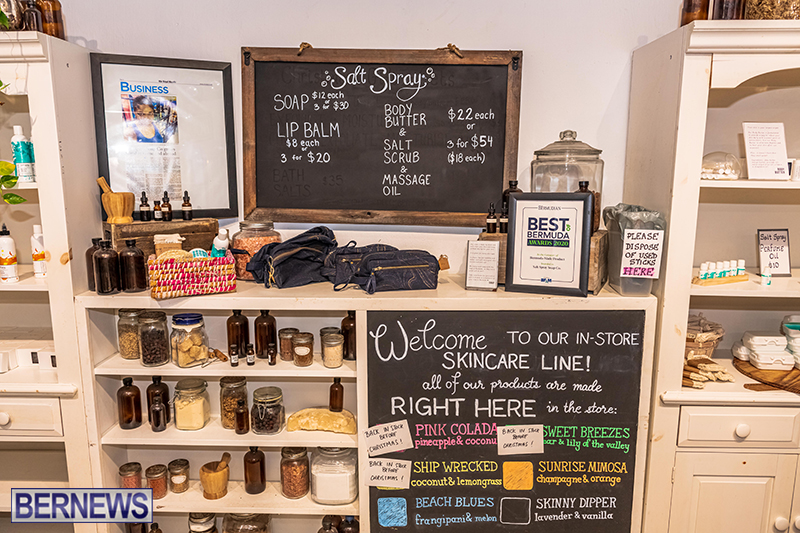 BUSINESS
Salt Spray
SOAP $12 each
3 for $30
LIP BALM
$8 each
or
3 for $20
BATH
SALTS $35
BODY
BUTTER
&
SALT
SCRUB
&
MASSAGE
OIL
$22 each
or
3 for $54
($18 each)
BERMUDIAN
BEST OF
BERMUDA
AWARDS 2020
PLEASE
DISPOSE
OF USED
STICKS
HERE
Salt Spray
Perfume
Oil
Welcome TO OUR IN-STORE
SKINCARE LINE!
all of our products are made
RIGHT HERE in the store:
BACK IN STOCK
BEFORE
CHRISTMAS!
PINK COLADA
pineapple & coconut
BACK IN STOCK
BEFORE
CHRISTMAS!
SWEET BREEZES
bar & lily of the valley
BACK IN STOCK
BEFORE
CHRISTMAS!
SHIP WRECKED
coconut & lemongrass
SUNRISE MIMOSA
champagne & orange
BEACH BLUES
frangipani & melon
SKINNY DIPPER
lavender & vanilla
BERNEWS